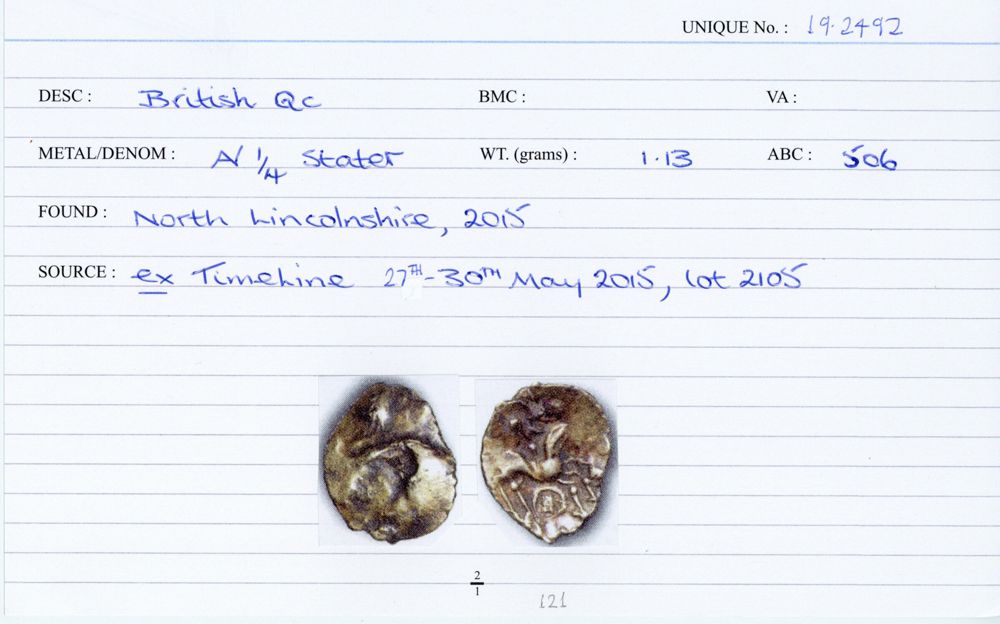 UNIQUE No. : 19.2492
DESC : British Qc BMC : VA :
METAL/DENOM : A/ 1/4 Stater WT. (grams) : 1.13 ABC : 506
FOUND : North Lincolnshire, 2015
SOURCE : ex TimeLine 27TH-30TH May 2015, lot 2105
2/1
121